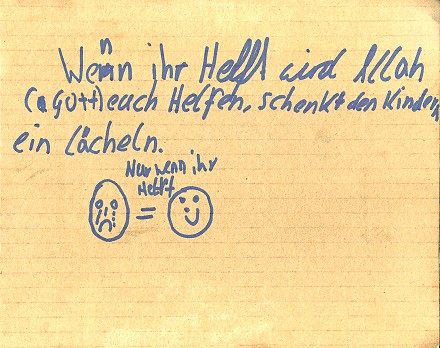 Wenn ihr Helft wird Allah
(Gott) euch Helfen, schenkt den Kindern
ein Lächeln.
Nur wenn ihr
Helft
=